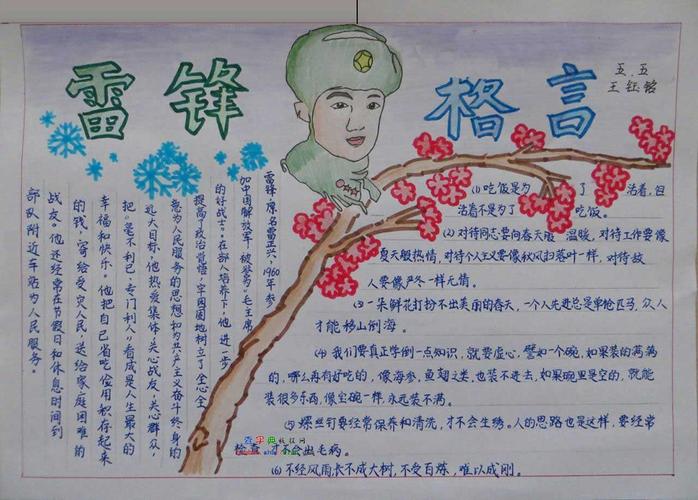 雷锋 格言
五.五
王钰铭
雷锋,原名雷正兴,1960年参
加中国解放军,被誉为"毛主席
的好战士"。在部队培养下,他进一步
提高了政治觉悟,牢固地树立了全心全
意为人民服务的思想和为共产主义奋斗终身的
远大目标,他热爱集体,关心战友,关心群众,
把"毫不利己,专门利人"看成是人生最大的
幸福和快乐。他把自己省吃俭用积存起来
的钱,寄给受灾人民,送给家庭困难的
战友。他还经常在节假日和休息时间到
部队附近车站为人民服务。
(1)吃饭是为了活着,但
活着不是为了吃饭。
(2)对待同志要向春天般温暖,对待工作要像
夏天般热情,对待个人主义要像秋风扫落叶一样,对待敌
人要像严冬一样无情。
(3)一朵鲜花打扮不出美丽的春天,一个人先进总是单枪匹马,众人
才能移山倒海。
(4)我们要真正学倒一点知识,就要虚心,譬如一个碗,如果装的满满
的,哪么再有好吃的,像海参,鱼翅之类,也装不进去,如果碗里是空的,就能
装很多东西,像宝碗一样,永远装不满。
(5)螺丝钉要经常保养和清洗,才不会生锈。人的思路也是这样,要经常
检查,才不会出毛病。
(6)不经风雨,长不成大树,不受百炼,难以成刚。
查字典